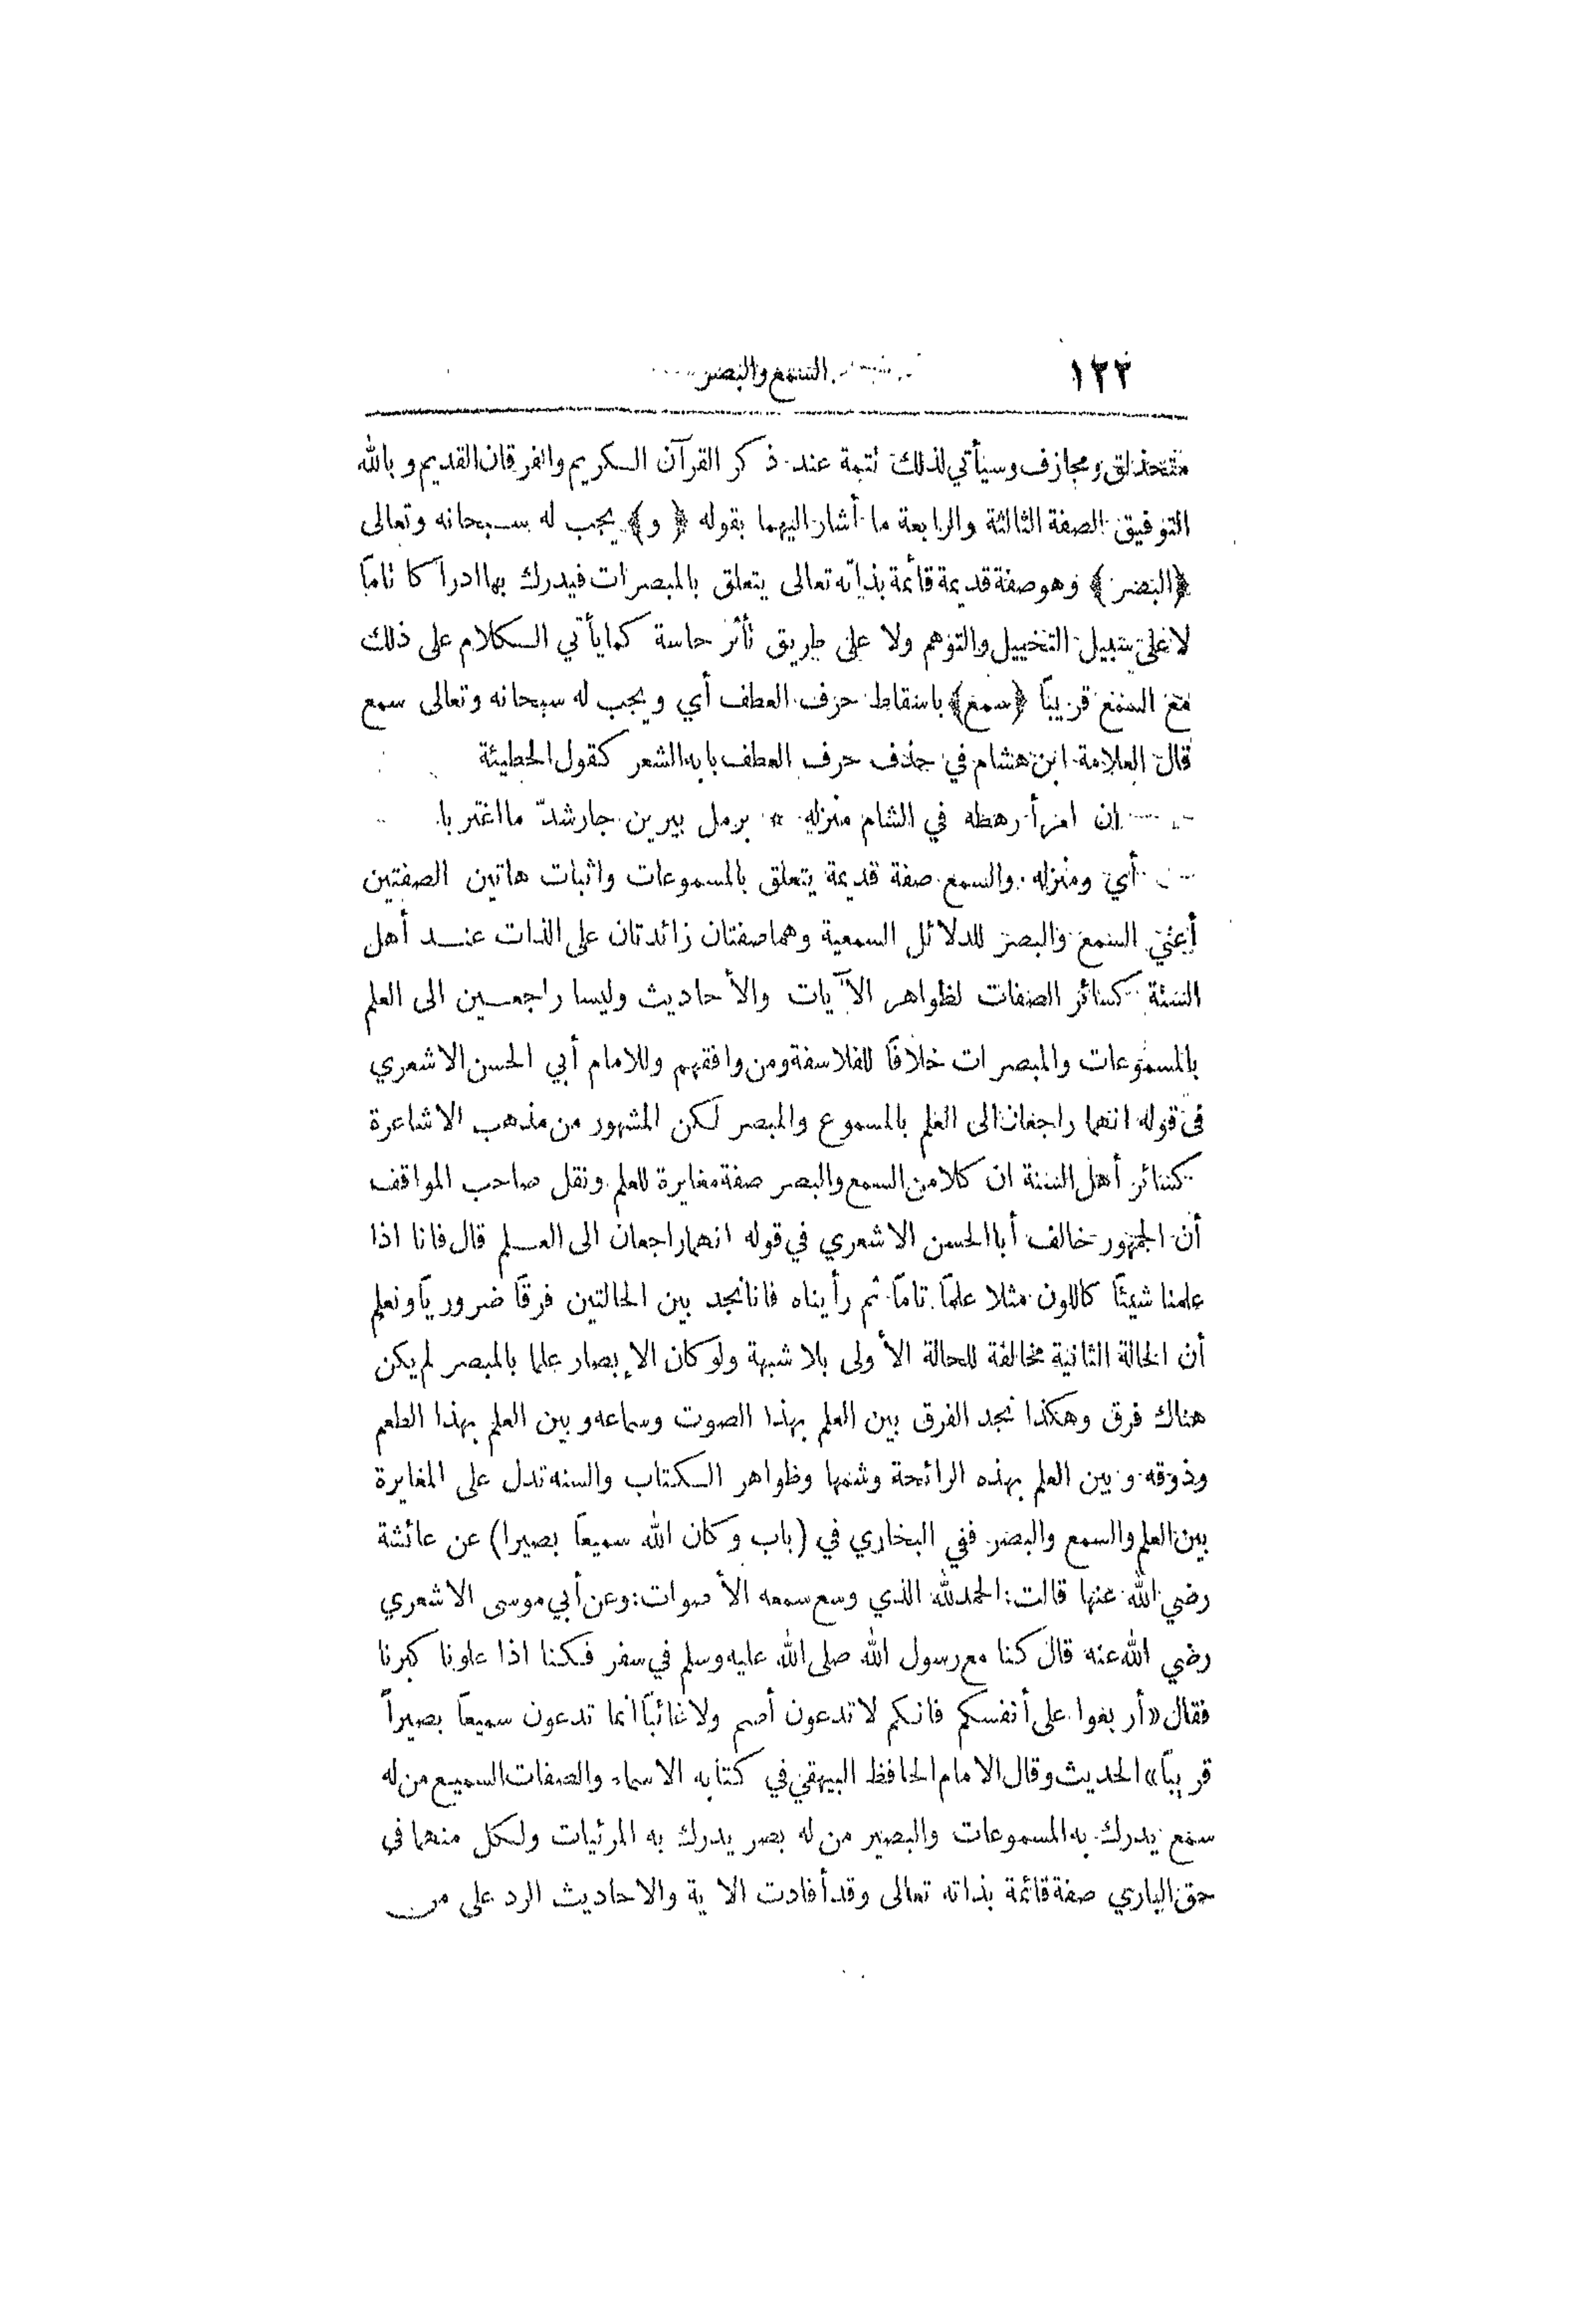 ١٢٢ السمع والبصر
متحذلق ومجازف وسيأتي لذلك تتمة عند ذكر القرآن الكريم والفرقان القديم وبالله
التوفيق الصفة الثالثة والرابعة ما أشار اليهما بقوله ﴿ و﴾ يجب له سبحانه وتعالى
﴿البصر﴾ وهو صفة قديمة قائمة بذاته تعالى يتعلق بالمبصرات فيدرك بها ادراكا تامًا
لا على سبيل التخييل والتوهم ولا على طريق تأثر حاسة كما يأتي الكلام على ذلك
مع السمع قريبًا ﴿سمع﴾ باسقاط حرف العطف أي ويجب له سبحانه وتعالى سمع
قال العلامة ابن هشام في حذف حرف العطف بابه الشعر كقول الحطيئة
ان امرأ رهطه في الشام منزله * برمل يبرين جار شدّ ما اغتربا
أي ومنزله والسمع صفة قديمة يتعلق بالمسموعات واثبات هاتين الصفتين
أعني السمع والبصر للدلائل السمعية وهما صفتان زائدتان على الذات عند أهل
السنة كسائر الصفات لظواهر الآيات والأحاديث وليسا راجعين الى العلم
بالمسموعات والمبصرات خلافًا للفلاسفة ومن وافقهم وللامام أبي الحسن الاشعري
في قوله انهما راجعان الى العلم بالمسموع والمبصر لكن المشهور من مذهب الاشاعرة
كسائر أهل السنة ان كلا من السمع والبصر صفة مغايرة للعلم ونقل صاحب المواقف
أن الجمهور خالف أبا الحسن الاشعري في قوله انهما راجعان الى العلم قال فانا اذا
علمنا شيئًا كاللون مثلا علمًا تامًا ثم رأيناه فانا نجد بين الحالتين فرقًا ضروريًا ونعلم
أن الحالة الثانية مخالفة للحالة الأولى بلا شبهة ولو كان الإبصار علما بالمبصر لم يكن
هناك فرق وهكذا نجد الفرق بين العلم بهذا الصوت وسماعه وبين العلم بهذا الطعم
وذوقه وبين العلم بهذه الرائحة وشمها وظواهر الكتاب والسنه تدل على المغايرة
بين العلم والسمع والبصر ففي البخاري في (باب وكان الله سميعًا بصيرا) عن عائشة
رضي الله عنها قالت: الحمد لله الذي وسع سمعه الأصوات: وعن أبي موسى الاشعري
رضي الله عنه قال كنا مع رسول الله صلى الله عليه وسلم في سفر فكنا اذا علونا كبرنا
فقال «أربعوا على أنفسكم فانكم لا تدعون أصم ولا غائبًا انما تدعون سميعًا بصيرًا
قريبًا» الحديث وقال الامام الحافظ البيهقي في كتابه الاسماء والصفات السميع من له
سمع يدرك به المسموعات والبصير من له بصر يدرك به المرئيات ولكل منهما في
حق الباري صفة قائمة بذاته تعالى وقد أفادت الاية والاحاديث الرد على من